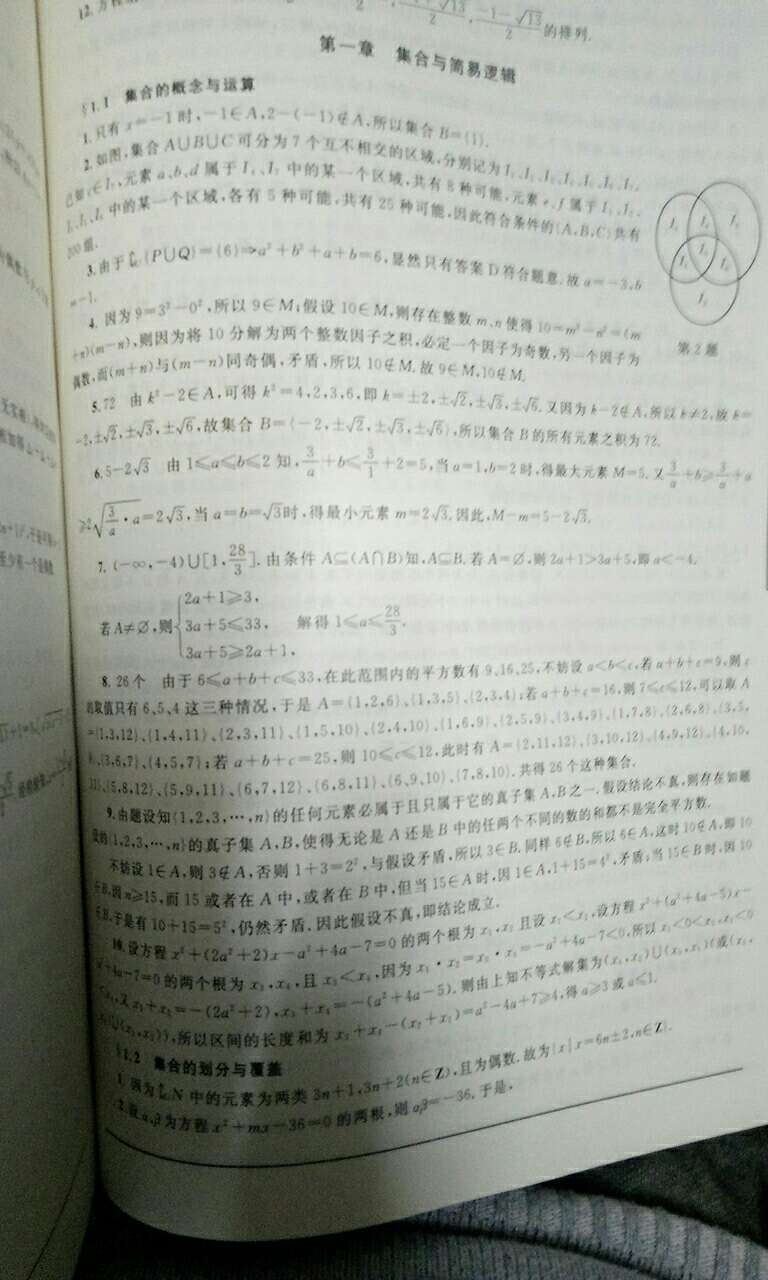 12. 方程
2, 2, −1−√13/2 的排列.
第一章 集合与简易逻辑
§1.1 集合的概念与运算
1. 只有 x=−1 时, −1∈A, 2−(−1)∉A, 所以集合 B={1}.
2. 如图, 集合 A∪B∪C 可分为 7 个互不相交的区域, 分别记为 I
已知 c∈I, 元素 a、b、d 属于 I 中的某一个区域, 共有 8 种可能, 元素 e、f 属于 I
中的某一个区域, 各有 5 种可能, 共有 25 种可能, 因此符合条件的 (A,B,C) 共有
200 组.
3. 由于 (P∪Q)={6}⇒a²+b²+a+b=6, 显然只有答案 D 符合题意. 故 a=−3, b
=−1.
4. 因为 9=3²−0², 所以 9∈M; 假设 10∈M, 则存在整数 m、n 使得 10=m²−n²=(m
+n)(m−n), 则因为将 10 分解为两个整数因子之积, 必定一个因子为奇数, 另一个因子为
偶数, 而(m+n)与(m−n)同奇偶, 矛盾, 所以 10∉M. 故 9∈M, 10∉M.
第 2 题
5. 72 由 k²−2∈A, 可得 k²=4,2,3,6, 即 k=±2,±√2,±√3,±√6. 又因为 k−2∉A, 所以 k≠2, 故 k=
−2,±√2,±√3,±√6, 故集合 B={−2,±√2,±√3,±√6}, 所以集合 B 的所有元素之积为 72.
6. 5−2√3 由 1≤a≤b≤2 知, 3/a+b≤3/1+2=5, 当 a=1, b=2 时, 得最大元素 M=5. 又 3/a+b≥3/a+a
≥2√(3/a·a)=2√3, 当 a=b=√3 时, 得最小元素 m=2√3. 因此, M−m=5−2√3.
7. (−∞,−4)∪[1, 28/3]. 由条件 A⊆(A∩B)知, A⊆B. 若 A=∅, 则 2a+1>3a+5, 即 a<−4.
2a+1≥3,
若 A≠∅, 则 3a+5≤33, 解得 1≤a≤28/3.
3a+5≥2a+1,
8. 26个 由于 6≤a+b+c≤33, 在此范围内的平方数有 9、16、25, 不妨设 a<b<c, 若 a+b+c=9, 则 c
的取值只有 6、5、4 这三种情况, 于是 A={1,2,6}、{1,3,5}、{2,3,4}; 若 a+b+c=16, 则 7≤c≤12, 可以取 A
={1,3,12}、{1,4,11}、{2,3,11}、{1,5,10}、{2,4,10}、{1,6,9}、{2,5,9}、{3,4,9}、{1,7,8}、{2,6,8}、{3,5,
8}、{3,6,7}、{4,5,7}; 若 a+b+c=25, 则 10≤c≤12, 此时有 A={2,11,12}、{3,10,12}、{4,9,12}、{4,10,
11}、{5,8,12}、{5,9,11}、{6,7,12}、{6,8,11}、{6,9,10}、{7,8,10}. 共得 26 个这种集合.
9. 由题设知{1,2,3,⋯,n}的任何元素必属于且只属于它的真子集 A、B 之一. 假设结论不真, 则存在如题
设的{1,2,3,⋯,n}的真子集 A、B, 使得无论是 A 还是 B 中的任两个不同的数的和都不是完全平方数.
不妨设 1∈A, 则 3∉A, 否则 1+3=2², 与假设矛盾, 所以 3∈B. 同样 6∉B, 所以 6∈A, 这时 10∉A, 即 10
∈B. 因 n≥15, 而 15 或者在 A 中, 或者在 B 中, 但当 15∈A 时, 因 1∈A, 1+15=4², 矛盾; 当 15∈B 时, 因 10
∈B, 于是有 10+15=5², 仍然矛盾. 因此假设不真, 即结论成立.
10. 设方程 x²+(2a²+2)x−a²+4a−7=0 的两个根为 x₁、x₂ 且设 x₁<x₂, 设方程 x²+(a²+4a−5)x−
a²+4a−7=0 的两个根为 x₃、x₄, 且 x₃<x₄, 因为 x₁·x₂=x₃·x₄=−a²+4a−7<0, 所以 x₁<0<x₂, x₃<0
<x₄, 又 x₁+x₂=−(2a²+2), x₃+x₄=−(a²+4a−5). 则由上知不等式解集为
所以区间的长度和为 =a²−4a+7≥4, 得 a≥3 或 a≤1.
§1.2 集合的划分与覆盖
1. 因为 N 中的元素为两类 3n+1, 3n+2(n∈Z), 且为偶数. 故为{x|x=6n±2, n∈Z}.
2. 设 α、β 为方程 x²+mx−36=0 的两根, 则 αβ=−36. 于是,